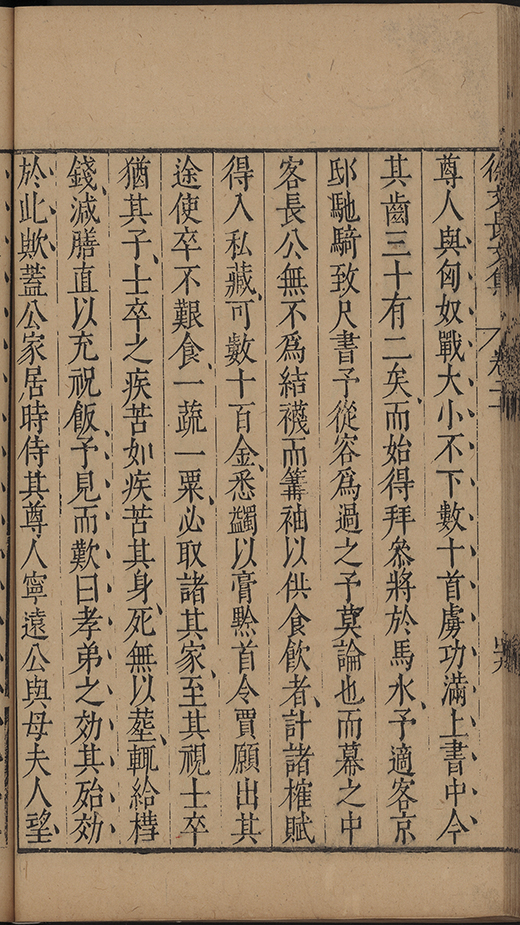 徐文長文集 卷二
尊人與匈奴戰大小不下數十首虜功滿上書中今
其齒三十有二矣而始得拜叅將於馬水予適客京
邸馳騎致尺書予從容爲過之予莫論也而幕之中
客長公無不爲結襪而韝袖以供食飲者計諸榷賦
得入私藏可數十百金悉蠲以膏黔首令賈願出其
途使卒不艱食一蔬一粟必取諸其家至其視士卒
猶其子士卒之疾苦如疾苦其身死無以塟輒給槥
錢減膳直以充祝飯予見而歎曰孝弟之効其殆効
於此歟蓋公家居時侍其尊人寧遠公與母夫人望